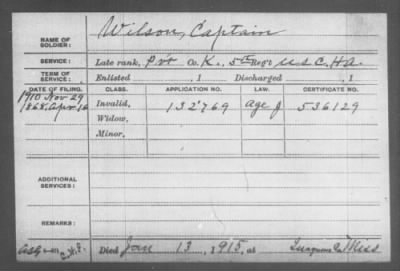 NAME OF SOLDIER: Wilson, Captain
SERVICE: Late rank, Pvt Co. K., 5th Reg't U.S.C.H.A.
TERM OF SERVICE: Enlisted , 1 Discharged , 1
DATE OF FILING. CLASS. APPLICATION NO. LAW. CERTIFICATE NO.
1910 Nov 29
1868. Apr. 16 Invalid, 132769 Age J 536129
Widow,
Minor,
ADDITIONAL SERVICES:
REMARKS:
Died Jan 13, 1915, at Miss